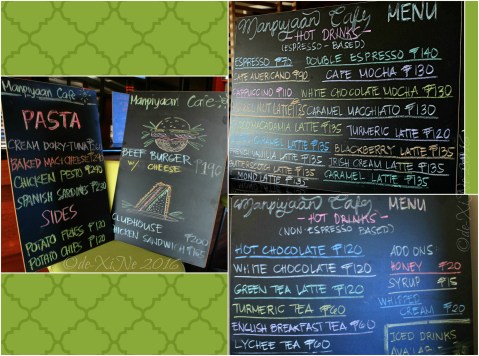 Manpiyaan Cafe
PASTA
CREAM DORY-TUNA
BAKED MAC & CHEESE
CHICKEN PESTO ₱290
SPANISH SARDINES
SIDES
POTATO FRIES ₱120
POTATO CHIPS ₱120
Manpiyaan Cafe
BEEF BURGER
W/ CHEESE ₱190
CLUBHOUSE ₱200
CHICKEN SANDWICH ₱165
©de-XiNe 2016
Manpiyaan Cafe MENU
HOT DRINKS
(ESPRESSO-BASED)
ESPRESSO ₱70 DOUBLE ESPRESSO ₱140
CAFE AMERICANO ₱90 CAFE MOCHA ₱130
CAPPUCCINO ₱110 WHITE CHOCOLATE MOCHA ₱130
LATTE CARAMEL MACCHIATO ₱130
MACADAMIA LATTE TURMERIC LATTE ₱120
CARAMEL LATTE ₱135 BLACKBERRY LATTE ₱135
VANILLA LATTE ₱135 IRISH CREAM LATTE ₱135
LATTE ₱135 CARAMEL LATTE ₱135
Manpiyaan Cafe MENU
HOT DRINKS
(NON ESPRESSO BASED)
HOT CHOCOLATE ₱120
WHITE CHOCOLATE ₱120
GREEN TEA LATTE ₱120
TURMERIC TEA ₱60
ENGLISH BREAKFAST TEA ₱60
LYCHEE TEA ₱60
ADD ONS:
HONEY ₱20
SYRUP ₱15
WHIPPED
CREAM ₱20
ICED DRINKS